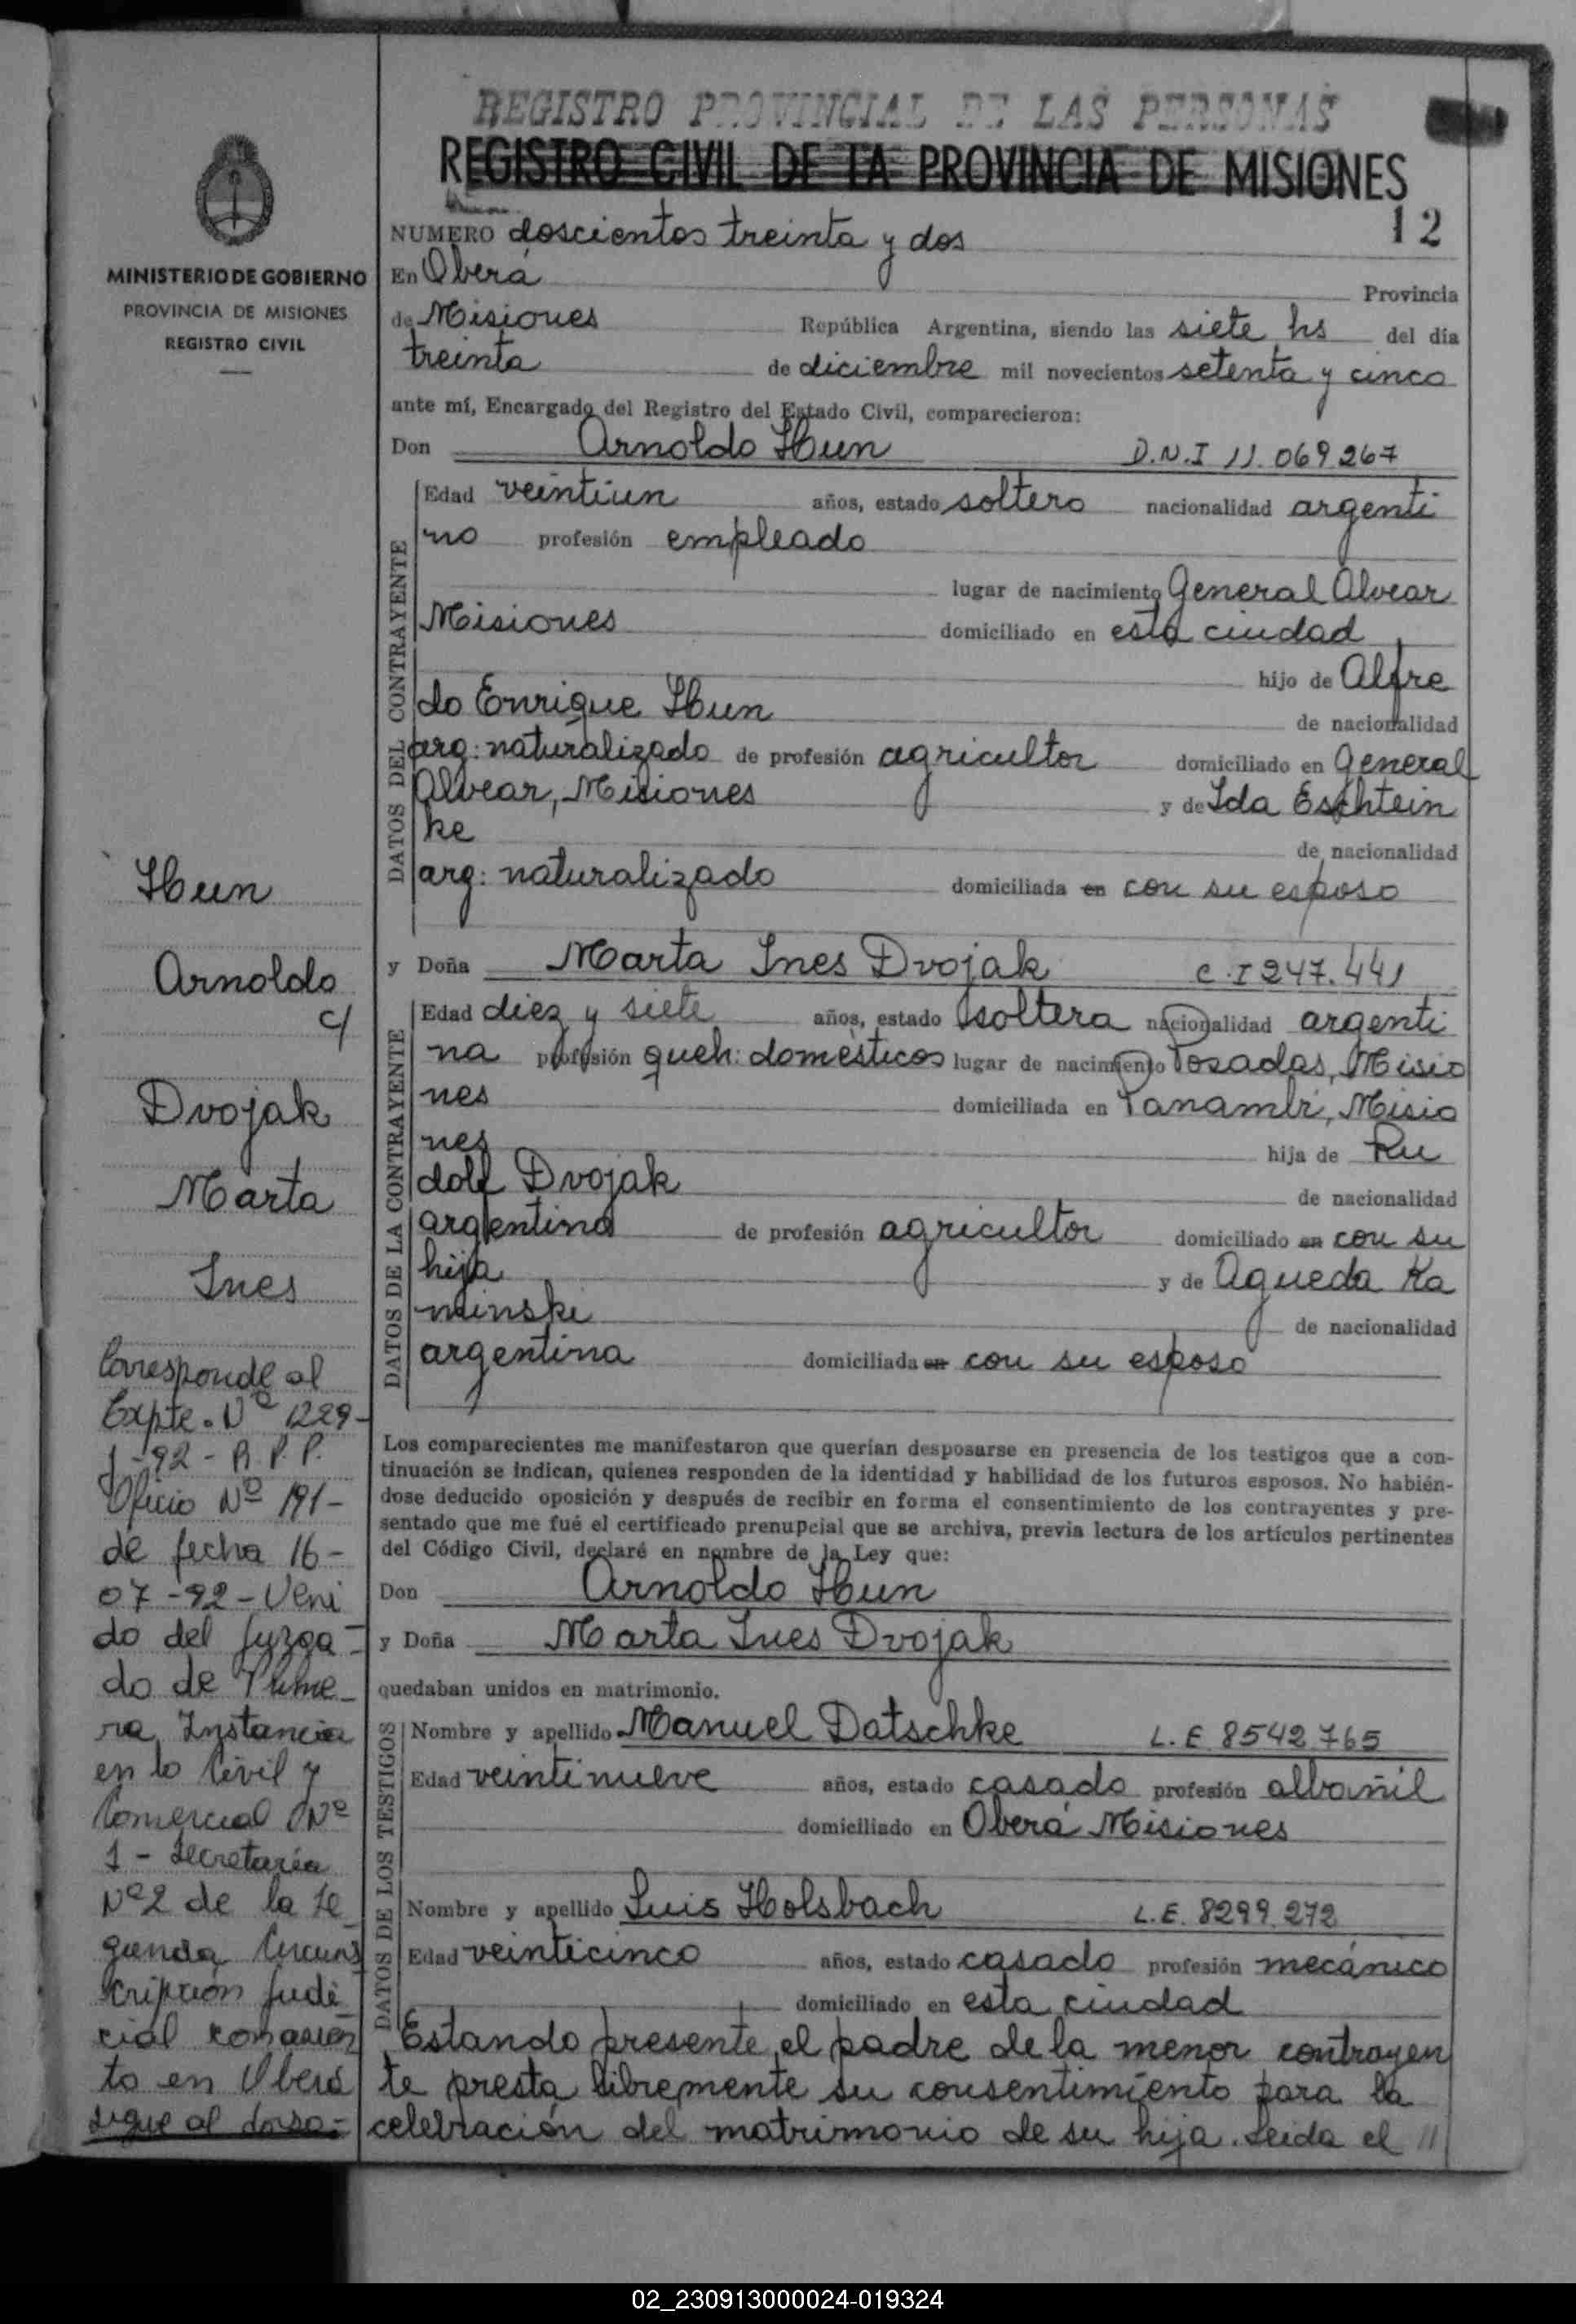 REGISTRO PROVINCIAL DE LAS PERSONAS
REGISTRO CIVIL DE LA PROVINCIA DE MISIONES
12
MINISTERIO DE GOBIERNO
PROVINCIA DE MISIONES
REGISTRO CIVIL
NUMERO doscientos treinta y dos
En Oberá Provincia
de Misiones República Argentina, siendo las siete hs del día
treinta de diciembre mil novecientos setenta y cinco
ante mí, Encargado del Registro del Estado Civil, comparecieron:
Don Arnoldo Hun D.N.I 11.069.267
DATOS DEL CONTRAYENTE
Edad veintiun años, estado soltero nacionalidad argenti
no profesión empleado
lugar de nacimiento General Alvear
Misiones domiciliado en esta ciudad
hijo de Alfre
do Enrique Hun de nacionalidad
arg: naturalizado de profesión agricultor domiciliado en General
Alvear, Misiones y de Ida Eschtein
ke de nacionalidad
arg: naturalizado domiciliada en con su esposo
y Doña Marta Ines Dvojak C.I 247.441
DATOS DE LA CONTRAYENTE
Edad diez y siete años, estado soltera nacionalidad argenti
na profesión queh: domésticos lugar de nacimiento Posadas, Misio
nes domiciliada en Panambí, Misio
nes hija de Ru
dolf Dvojak de nacionalidad
argentino de profesión agricultor domiciliado en con su
hija y de Agueda Ka
minski de nacionalidad
argentina domiciliada en con su esposo
Los comparecientes me manifestaron que querían desposarse en presencia de los testigos que a con-
tinuación se indican, quienes responden de la identidad y habilidad de los futuros esposos. No habién-
dose deducido oposición y después de recibir en forma el consentimiento de los contrayentes y pre-
sentado que me fué el certificado prenupcial que se archiva, previa lectura de los artículos pertinentes
del Código Civil, declaré en nombre de la Ley que:
Don Arnoldo Hun
y Doña Marta Ines Dvojak
quedaban unidos en matrimonio.
DATOS DE LOS TESTIGOS
Nombre y apellido Manuel Datschke L.E 8542.765
Edad veintinueve años, estado casado profesión albañil
domiciliado en Oberá Misiones
Nombre y apellido Luis Holsbach L.E. 8299.272
Edad veinticinco años, estado casado profesión mecánico
domiciliado en esta ciudad
Estando presente el padre de la menor contrayen
te presta libremente su consentimiento para la
celebración del matrimonio de su hija. Leida el //
Hun
Arnoldo
c/
Dvojak
Marta
Ines
Corresponde al
Expte. Nº 1229-
J-92-R.P.P.
Oficio Nº 191-
de fecha 16-
07-92-Veni
do del Juzga-
do de Prime-
ra Instancia
en lo Civil y
Comercial Nº
1 - Secretaría
Nº2 de la Se
gunda Circuns
cripción Judi
cial con asien
to en Oberá
sigue al dorso=
02_230913000024-019324